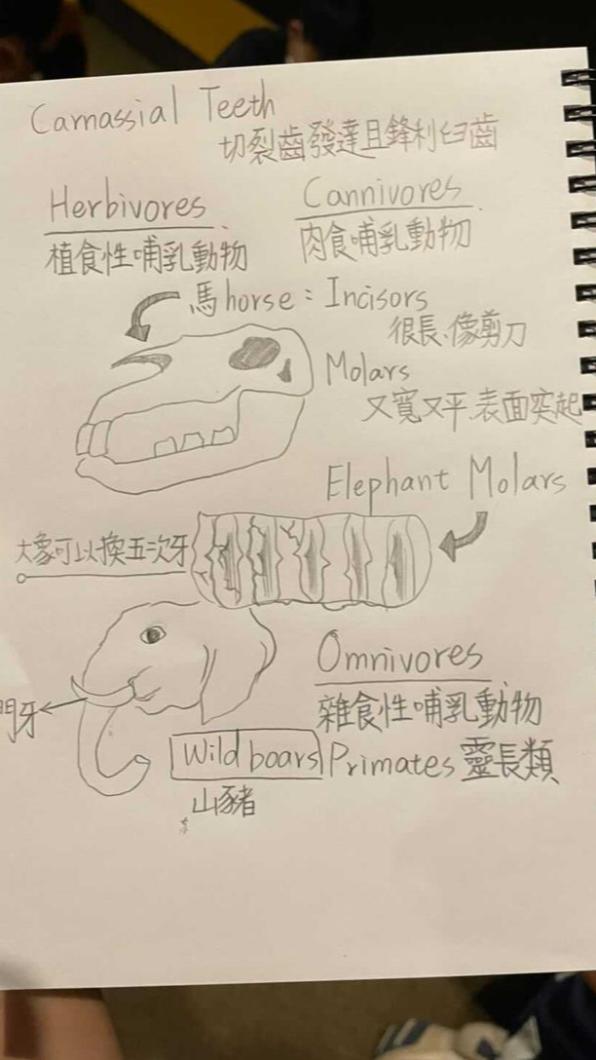 Carnassial Teeth
切裂齒發達且鋒利臼齒
Herbivores
植食性哺乳動物
Cannivores
肉食哺乳動物
馬horse：Incisors
很長、像剪刀
Molars
又寬又平、表面突起
Elephant Molars
大象可以換五次牙
門牙
Omnivores
雜食性哺乳動物
Wild boars Primates 靈長類
山豬